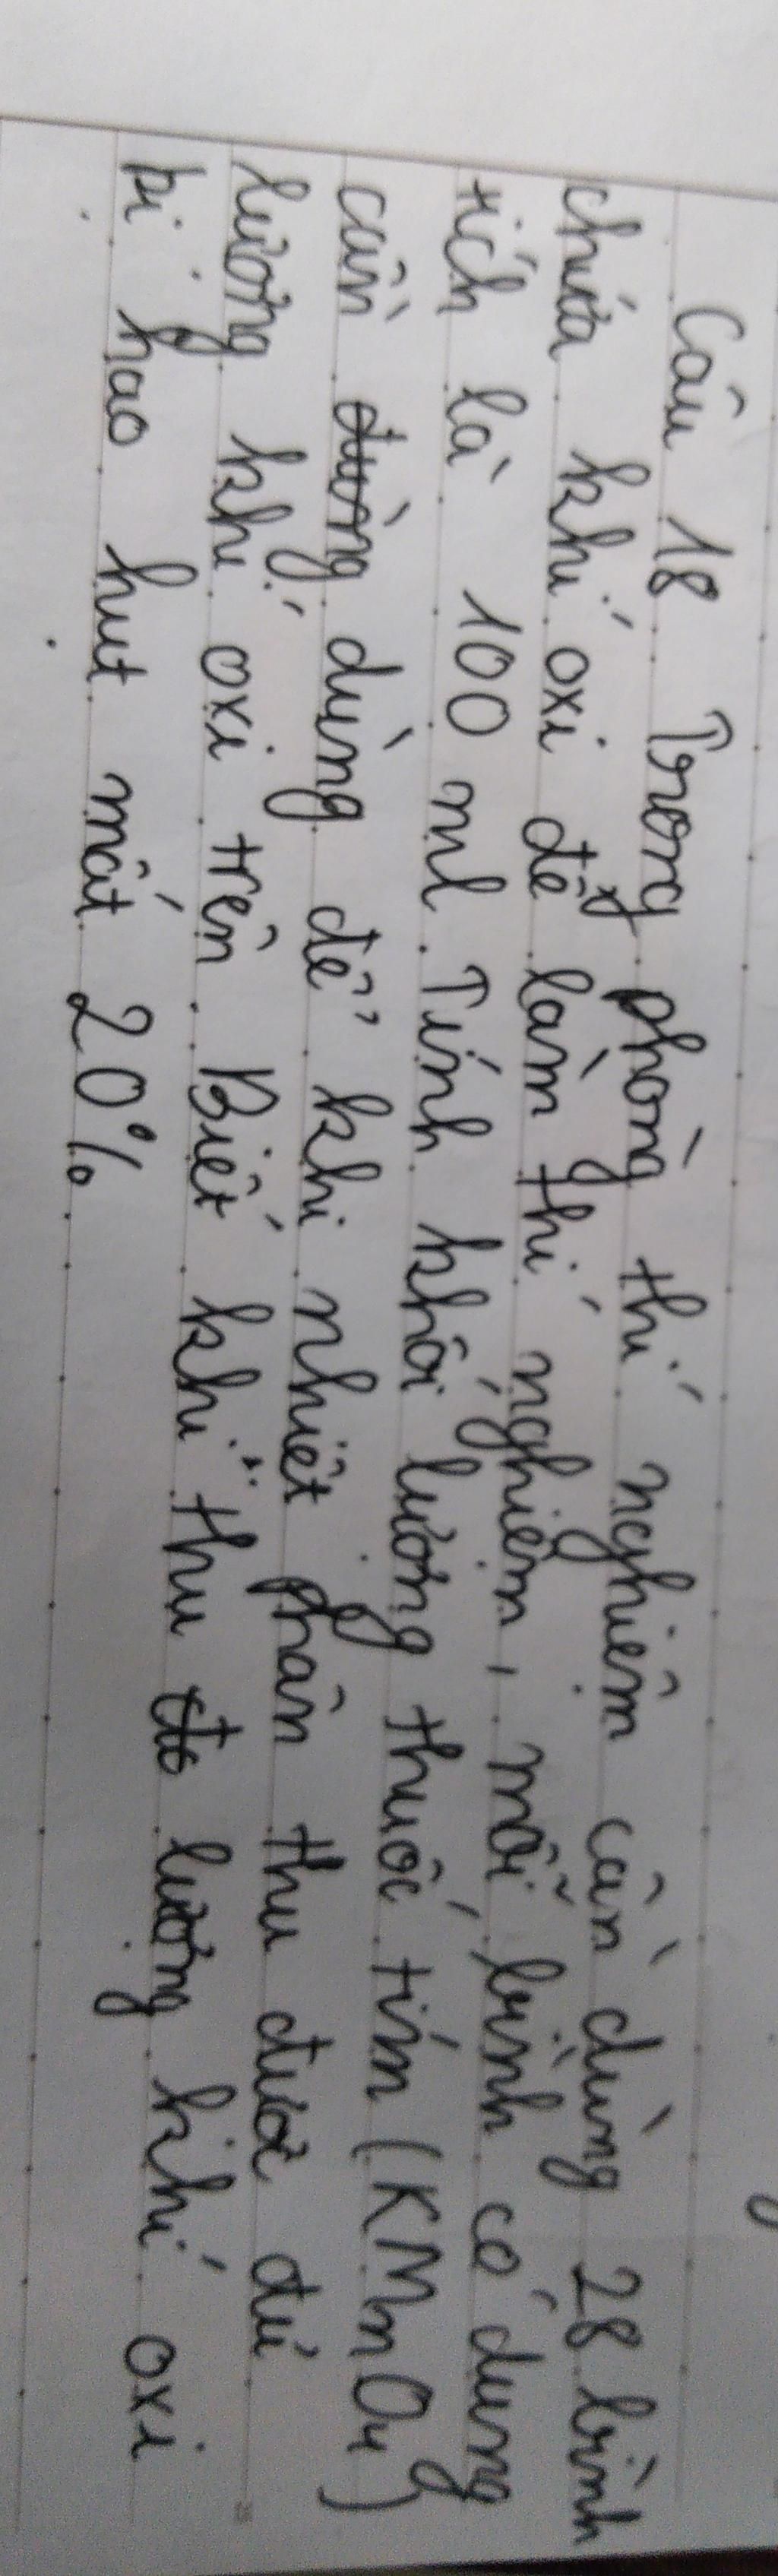 Câu 18 Trong phòng thí nghiệm cần dùng 28 bình
chứa khí oxi để làm thí nghiệm, mỗi bình có dung
tích là 100 ml. Tính khối lượng thuốc tím (KMnO4)
cần dùng để khi nhiệt phân thu đươc đủ
lượng khí oxi trên. Biết khí thu lượng khí oxi
bị hao hụt mất 20%